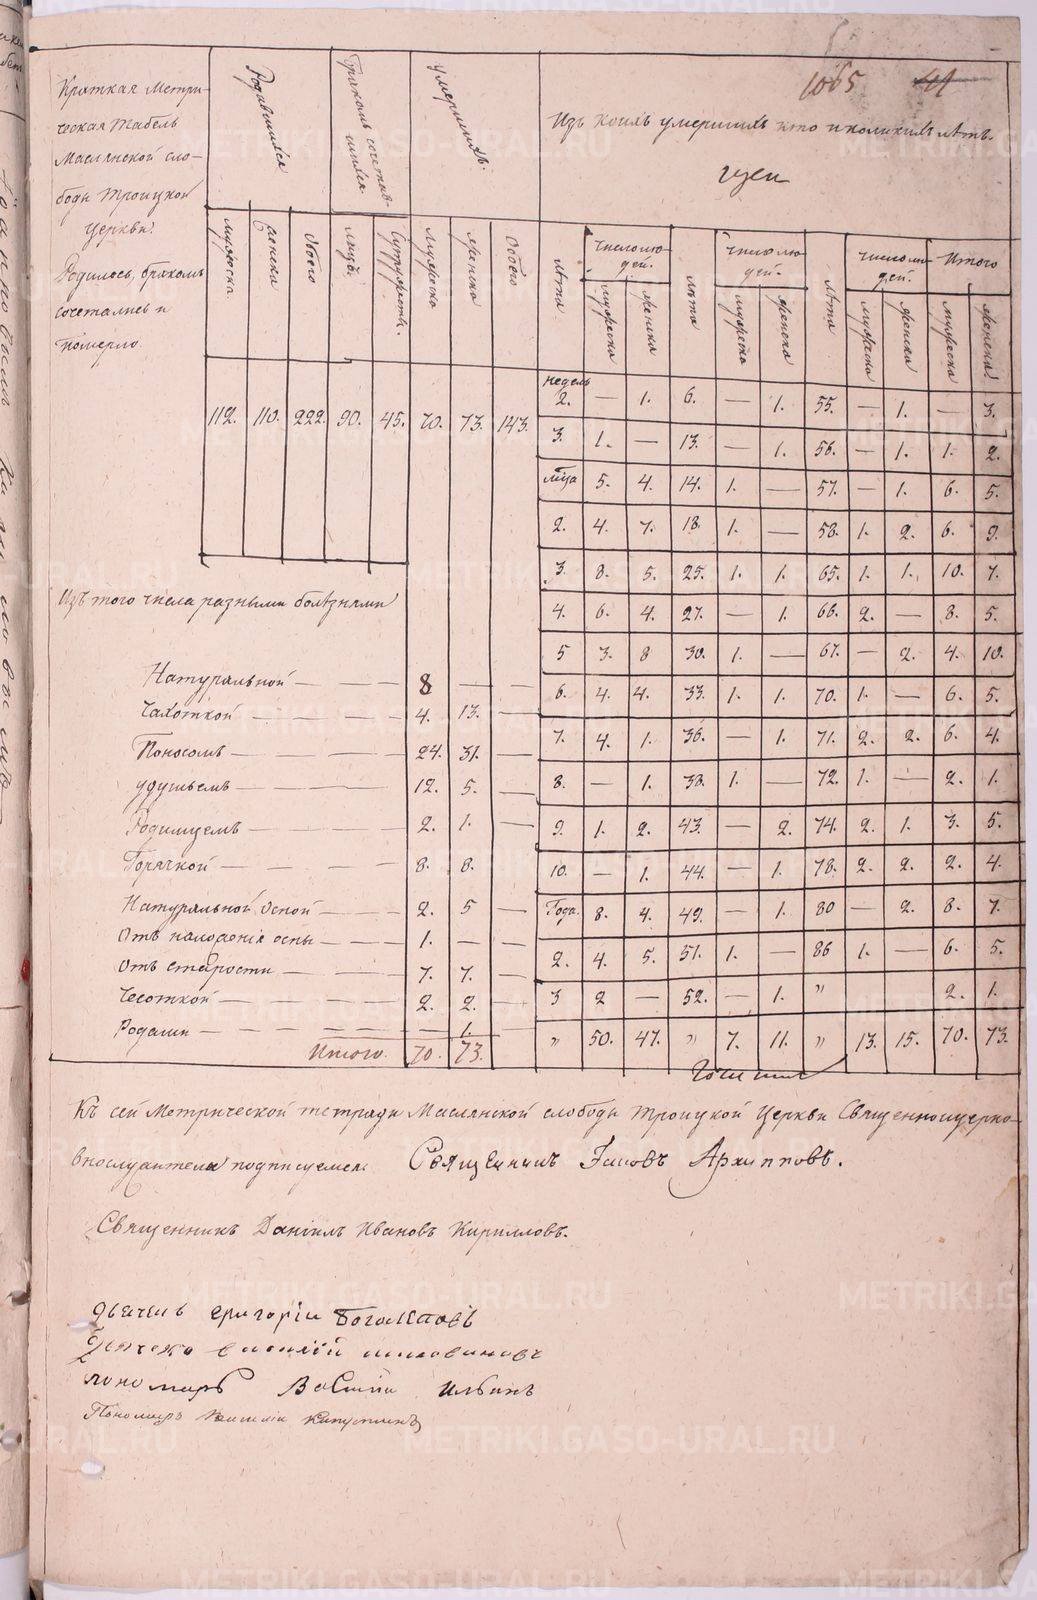 1065 41
Краткая Метри-
ческая табель
Маслянской сло-
боды Троицкой
Церкви.
Родилось, бракомъ
сочеталось и
померло.
Родившихся
Бракомъ сочетав-
шихся
Умершихъ.
Изъ коихъ умершихъ кто и коликихъ лѣтъ.
мужеска женска Обоего лицъ. Супружествъ. мужеска женска Обоего
Лѣта Числолю-
дей. Лѣта Числолю-
дей. Лѣта Числолю-
дей. Итого
мужеска женска мужеска женска мужеска женска мужеска женска
112. 110. 222. 90. 45. 70. 73. 143.
недель
2. — 1. 6. — 1. 55. — 1. — 3.
3. 1. — 13. — 1. 56. — 1. 1. 2.
мца 5. 4. 14. 1. — 57. — 1. 6. 5.
2. 4. 7. 18. 1. — 58. 1. 2. 6. 9.
3. 8. 5. 25. 1. 1. 65. 1. 1. 10. 7.
4. 6. 4. 27. — 1. 66. 2. — 8. 5.
5 3. 8 30. 1. — 67. — 2. 4. 10.
6. 4. 4. 33. 1. 1. 70. 1. — 6. 5.
7. 4. 1. 36. — 1. 71. 2. 2. 6. 4.
8. — 1. 38. 1. — 72. 1. — 2. 1.
9. 1. 2. 43. — 2. 74. 2. 1. 3. 5.
10. — 1. 44. — 1. 78. 2. 2. 2. 4.
Года. 8. 4. 49. — 1. 80 — 2. 8. 7.
2. 4. 5. 51. 1. — 86 1. — 6. 5.
3 2 — 52. — 1. " 2. 1.
" 50. 47. " 7. 11. " 13. 15. 70. 73.
Изъ того числа разными болѣзнями
Натуральной — 8 — —
Чахоткой — 4. 13. —
Поносомъ — 24. 31. —
Удушьемъ — 12. 5. —
Родимцемъ — 2. 1. —
Горячкой — 8. 8.
Натуральной Оспой — 2. 5 —
Отъ наложенія оспы — 1. — —
Отъ старости — 7. 7. —
Чесоткой — 2. 2. —
Родами — — 1.
Итого. 70. 73.
Къ сей Метрической тетради Маслянской слободы Троицкой Церкви Священноцерко-
внослужители подписуемся Священникъ Іаковъ Архипповъ.
Священникъ Даніилъ Ивановъ Кирилловъ.
Григоріи
пономарь Василіи Ильинъ
Пономарь
METRIKI.GASO-URAL.RU